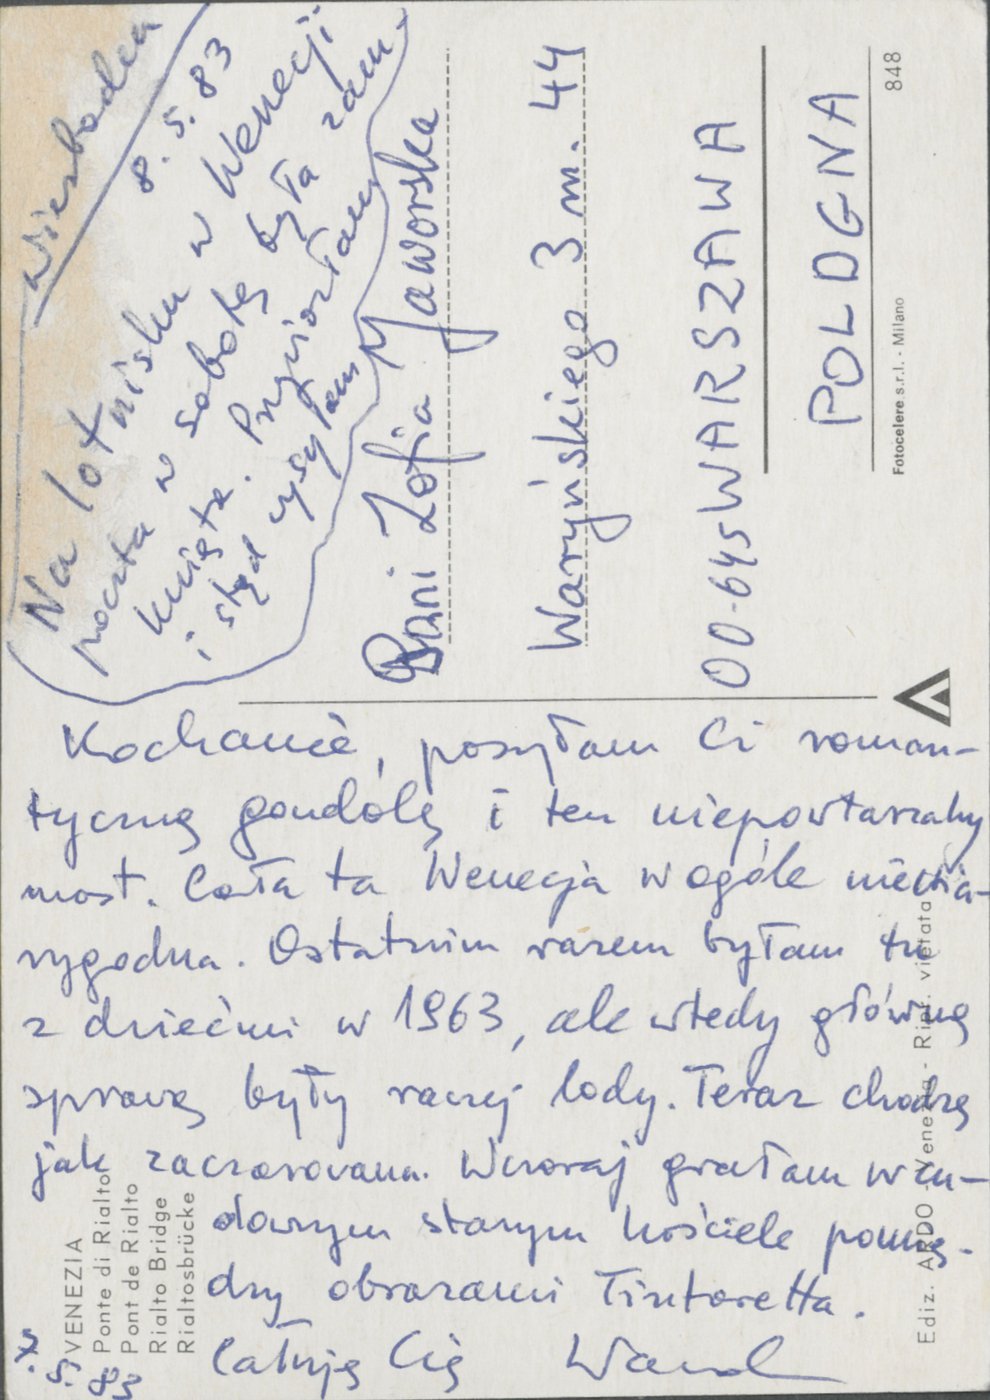 Wiesbaden
8.5.83
Na lotnisku w Wenecji
poczta w sobotę była zam-
knięta. Przywiozłam
i stąd wysyłam
Pani Zofia Jaworska
Waryńskiego 3 m. 44
00-645 WARSZAWA
POLOGNA
848
Fotocelere s.r.l. - Milano
Kochanie, posyłam Ci roman-
tyczną gondolę i ten niepowtarzalny
most. Cała ta Wenecja wogóle niewia-
rygodna. Ostatnim razem byłam tu
z dziećmi w 1963, ale wtedy główną
sprawą były raczej lody. Teraz chodzę
jak zaczarowana. Wczoraj grałam w cu-
downym starym kościele pomię-
dzy obrazami Tintoretta.
Całuję Cię Wand
7.5.83
VENEZIA
Ponte di Rialto
Pont de Rialto
Rialto Bridge
Rialtosbrücke
Ediz. ARDO - Venezia - Ripr. vietata